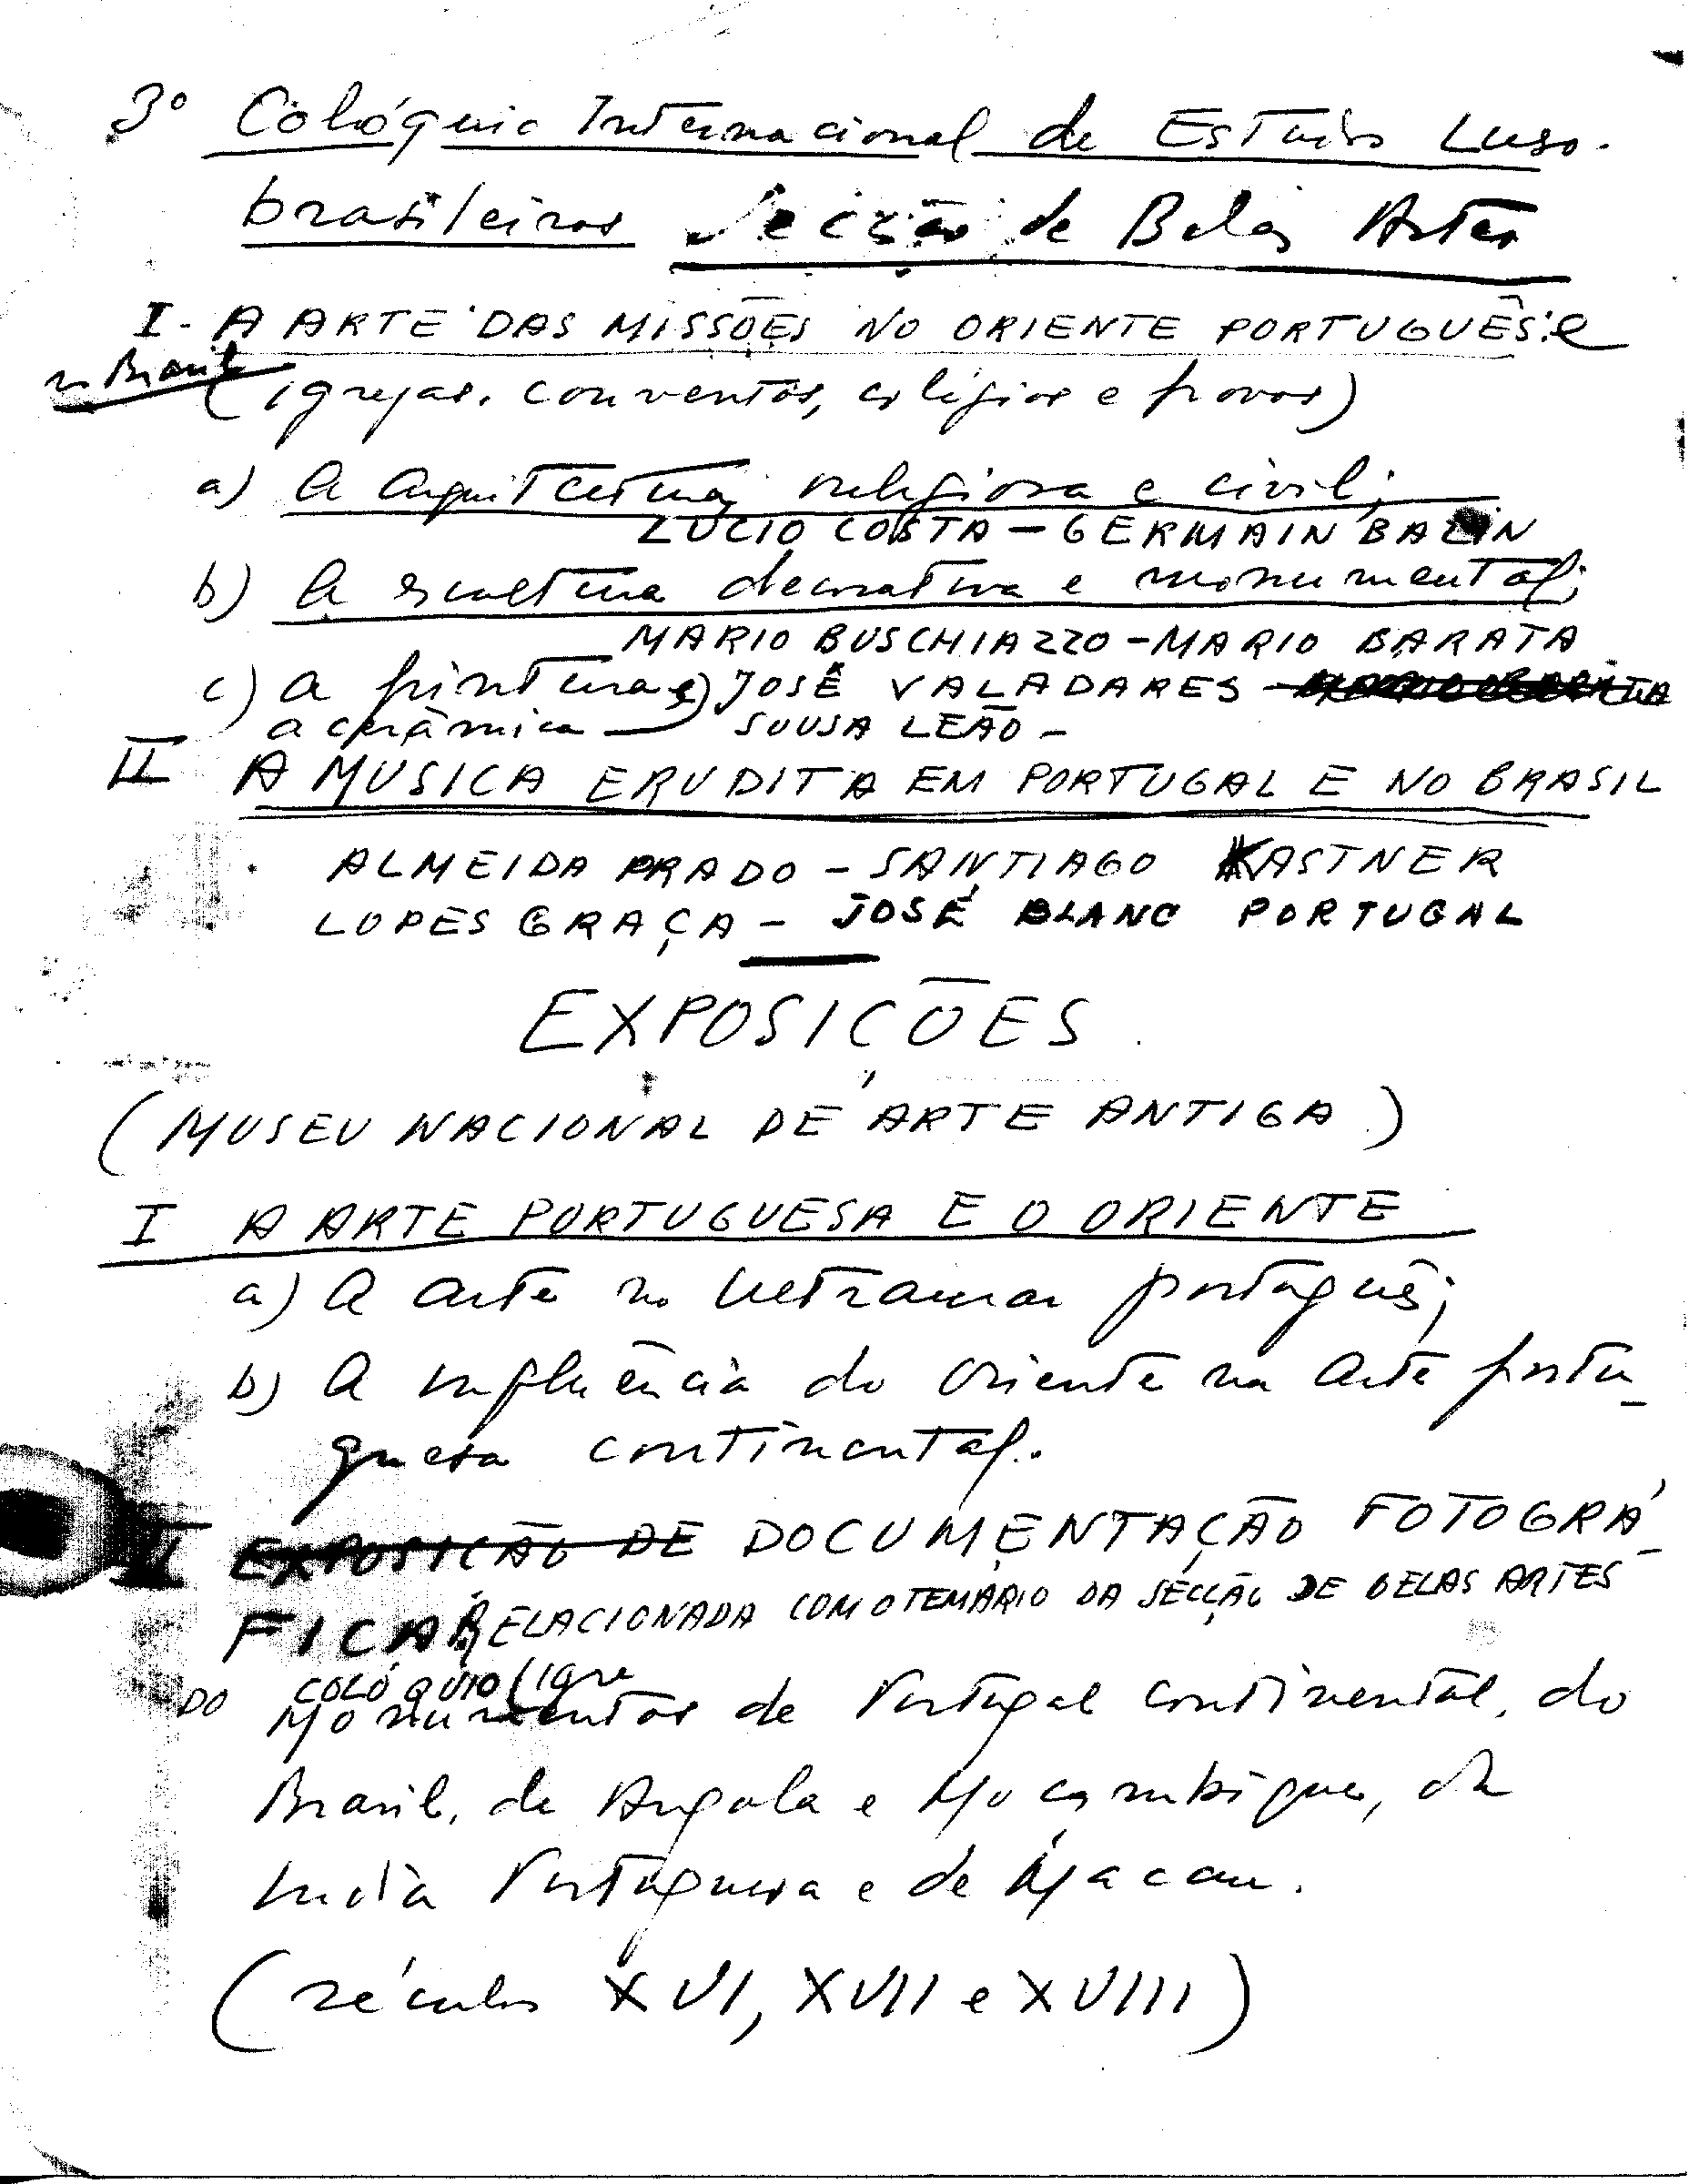 3º Colóquio Internacional de Estudos Luso-
brasileiros Secção de Belas Artes
I - A ARTE DAS MISSÕES NO ORIENTE PORTUGUÊS e
no Brasil
(igrejas, conventos, colégios e povos)
a) A arquitectura religiosa e civil;
LUCIO COSTA - GERMAIN BAZIN
b) A escultura decorativa e monumental;
MARIO BUSCHIAZZO - MARIO BARATA
c) a pintura e) JOSÉ VALADARES - MARIO BARATA
a cerâmica SOUSA LEÃO -
II A MUSICA ERUDITA EM PORTUGAL E NO BRASIL
ALMEIDA PRADO - SANTIAGO KASTNER
LOPES GRAÇA - JOSÉ BLANC PORTUGAL
EXPOSIÇÕES
(MUSEU NACIONAL DE ARTE ANTIGA)
I A ARTE PORTUGUESA E O ORIENTE
a) A arte no Ultramar português;
b) A influência do Oriente na Arte portu-
guesa continental.
II EXPOSIÇÃO DE DOCUMENTAÇÃO FOTOGRÁ-
FICA RELACIONADA COM O TEMÁRIO DA SECÇÃO DE BELAS ARTES
DO COLÓQUIO
Monumentos de Portugal continental, do
Brasil, de Angola e Moçambique, da
India Portuguesa e de Macau.
(séculos XVI, XVII e XVIII)